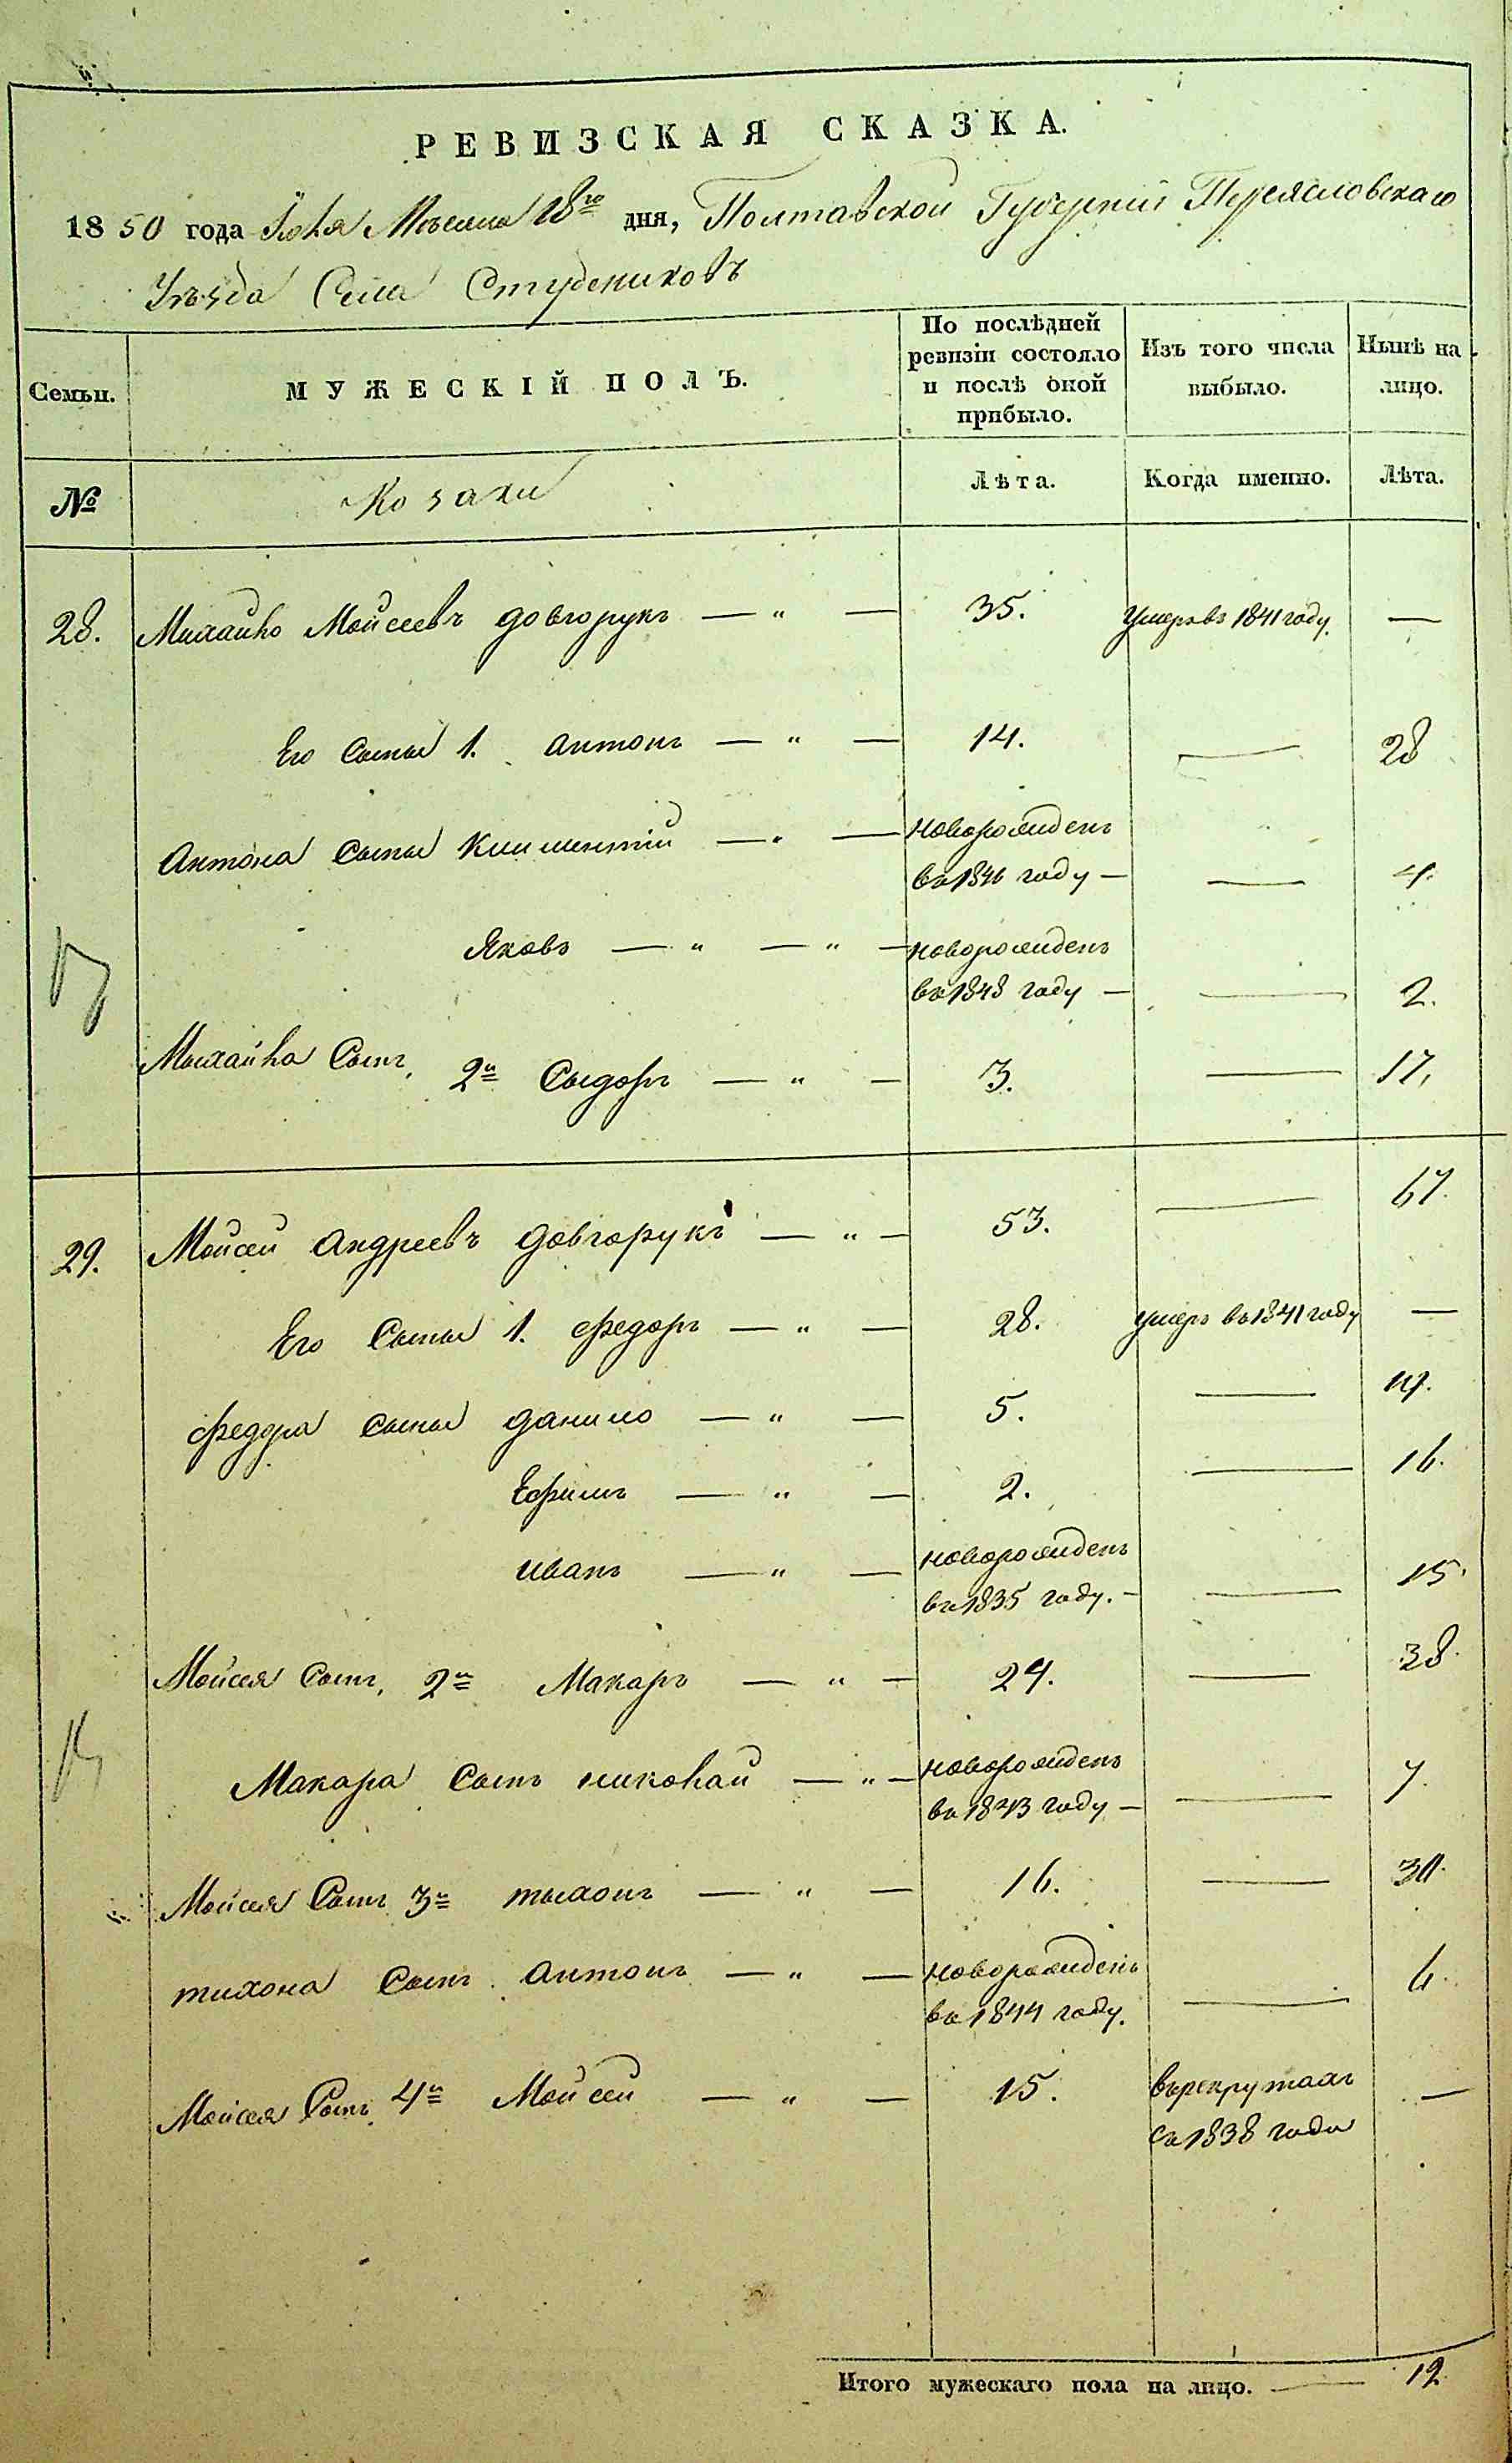 РЕВИЗСКАЯ СКАЗКА.
1850 года Июля Месяца 18го дня, Полтавской Губернии Переясловскаго
Уѣзда Села Студениковъ
Семьи. МУЖЕСКІЙ ПОЛЪ. По послѣдней ревизіи состояло и послѣ оной прибыло. Изъ того числа выбыло. Нынѣ на лицо.
№ Козаки Лѣта. Когда именно. Лѣта.
28. Михайло Мойсеевъ Довгорукъ — " — 35. Умеръ въ 1841 году. —
Его Сыны 1. Антонъ — " — 14. — 28
Антона Сыны Климентій — " — новорожденъ
въ 1846 году — — 4.
Яковъ — " — " — новорожденъ
въ 1848 году — — 2.
Михайла Сынъ, 2й Сыдоръ — " — 3. — 17.
29. Мойсей Андреевъ Довгорукъ — " — 53. — 67.
Его Сыны 1. Федоръ — " — 28. умеръ въ 1841 году —
Федора Сыны Данило — " — 5. — 19.
Ефимъ — " — 2. — 16.
Иванъ — " — новорожденъ
въ 1835 году. — — 15.
Мойсея Сынъ, 2й Макаръ — " — 24. — 38.
Макара Сынъ николай — " — новорожденъ
въ 1843 году — — 7.
Мойсея Сынъ 3й тыхонъ — " — 16. — 30.
тихона Сынъ Антонъ — " — новорожденъ
въ 1844 году. — 6.
Мойсея Сынъ 4й Мойсей — " — 15. въ рекрутахъ —
съ 1838 года
Итого мужескаго пола на лицо. — 12